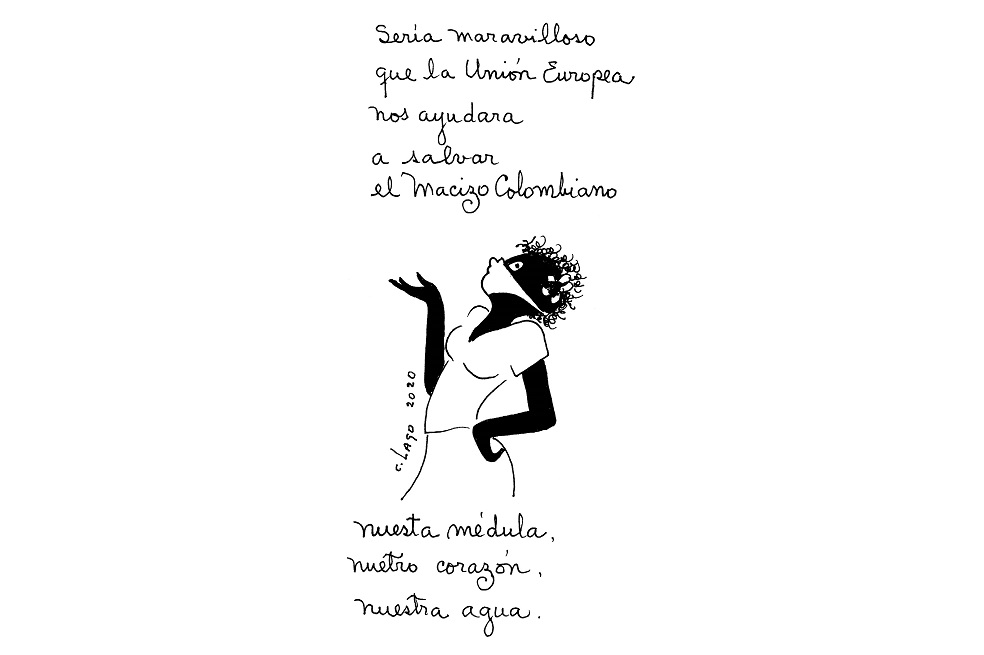 Sería maravilloso
que la Unión Europea
nos ayudara
a salvar
el Macizo Colombiano
C. LAGO 2020
nuesta médula,
nuetro corazón,
nuestra agua.